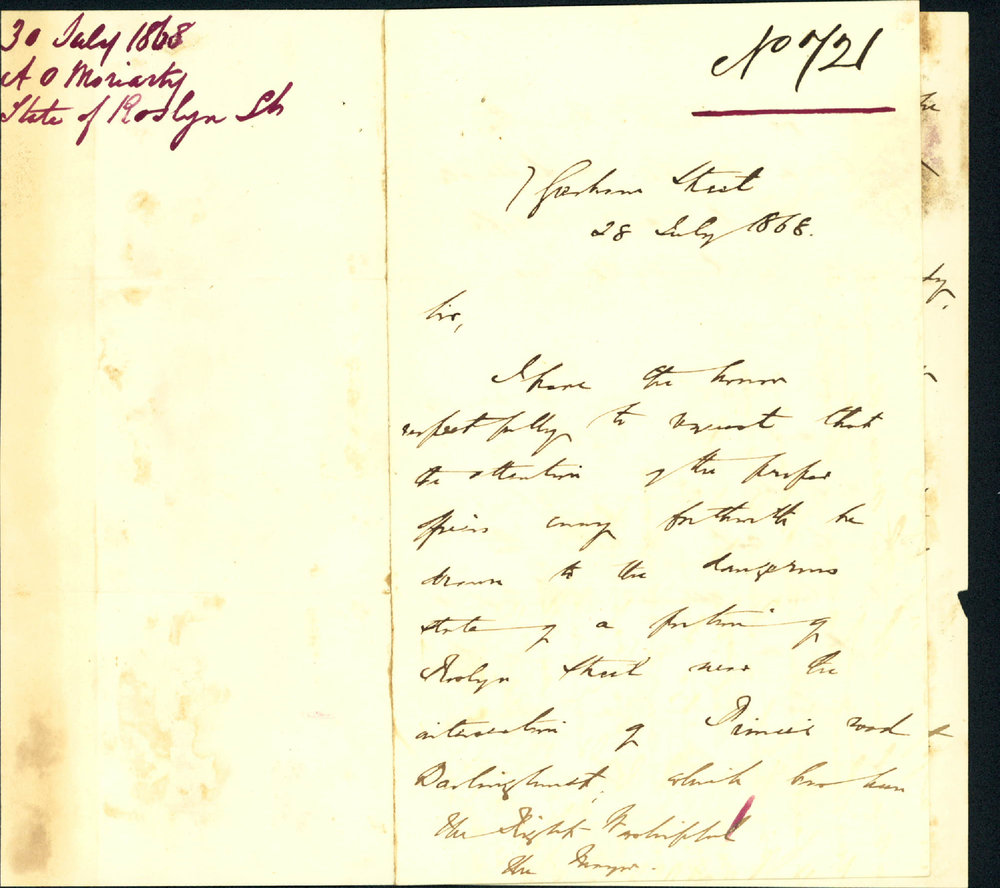 30 July 1868
A O Moriarty
State of Roslyn St
No 721
7 Gresham Street
28 July 1868.
Sir,
I have the honor
respectfully to request that
the attention of the proper
officer may forthwith be
drawn to the dangerous
state of a portion of
Roslyn Street near the
intersection of Princes road
Darlinghurst, which has been
The Right Worshipful
the Mayor.